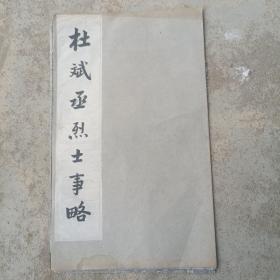 杜斌丞烈士事略